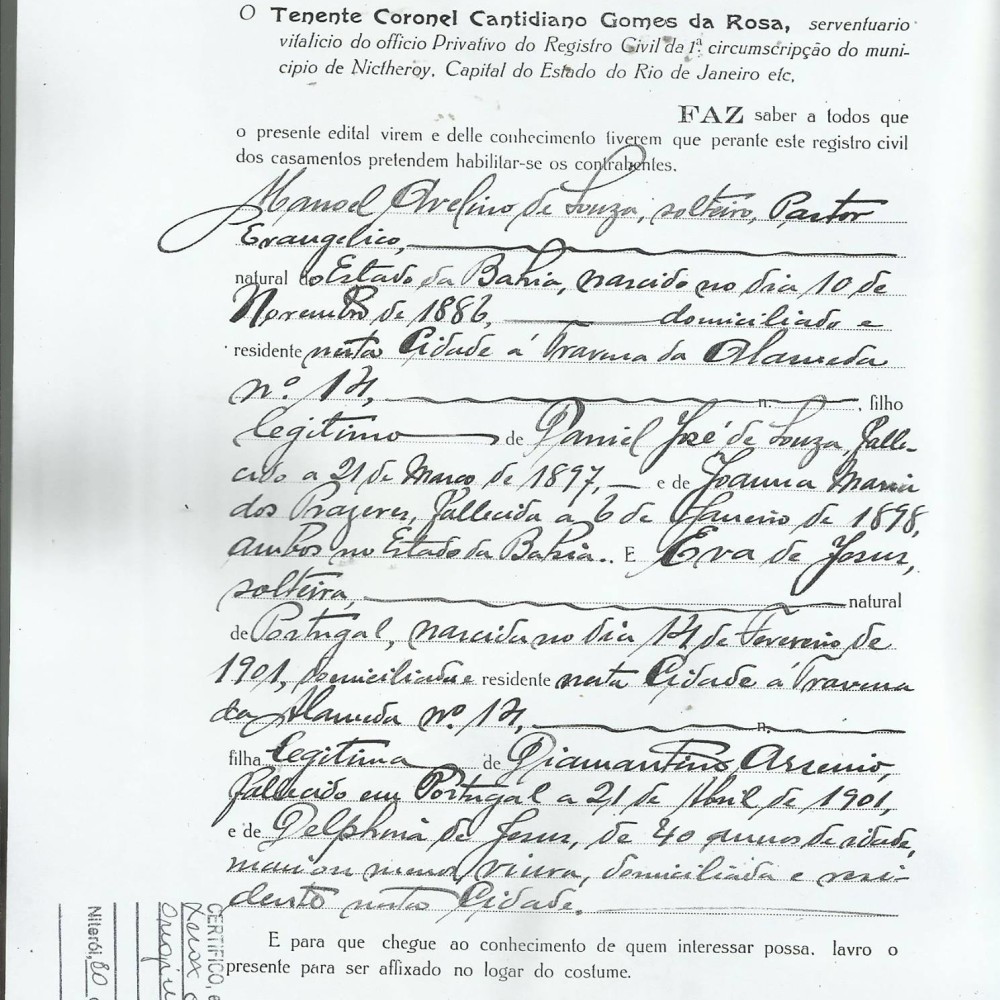 O Tenente Coronel Cantidiano Gomes da Rosa, serventuario
vitalicio do officio Privativo do Registro Civil da 1ª circumscripção do muni-
cipio de Nictheroy, Capital do Estado do Rio de Janeiro etc.
FAZ saber a todos que
o presente edital virem e delle conhecimento tiverem que perante este registro civil
dos casamentos pretendem habilitar-se os contrahentes.
Manoel Avelino de Souza, solteiro, Pastor
Evangelico,
natural do Estado da Bahia, nascido no dia 10 de
Novembro de 1886, domiciliado e
residente nesta Cidade á Travessa da Alameda
nº. 14, n. , filho
legitimo de Daniel José de Souza, falle-
cido a 21 de Março de 1897, e de Joanna Maria
dos Prazeres, fallecida a 6 de Janeiro de 1898,
ambos no Estado da Bahia.. E Eva de Jesus,
solteira, natural
de Portugal, nascida no dia 14 de Fevereiro de
1901, domiciliada e residente nesta Cidade á Travessa
da Alameda nº. 14, n.
filha legitima de Diamantino Arsenio,
fallecido em Portugal a 21 de Abril de 1901,
e de Delphina de Jesus, de 40 annos de idade,
mais ou menos, viuva, domiciliada e resi-
dente nesta Cidade.
E para que chegue ao conhecimento de quem interessar possa, lavro o
presente para ser affixado no logar do costume.
CERTIFICO,
Xerox
Niterói, 20